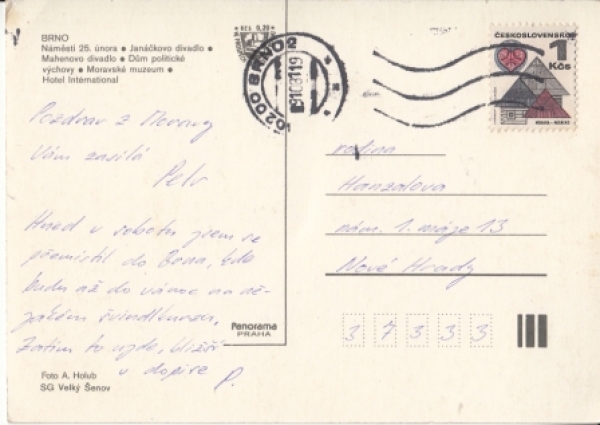 BRNO
Náměstí 25. února • Janáčkovo divadlo •
Mahenovo divadlo • Dům politické
výchovy • Moravské muzeum •
Hotel International
Kčs 0,20
602 00 BRNO 2
ČESKOSLOVENSKO
1
Kčs
Pozdrav z Moravy
Vám zasílá
Petr
Hned v sobotu jsem se
přemístil do Brna, kde
budu až do vánoc na ně-
jakém švindlkurzu,
Zatím to ujde, bližší
v dopise P.
rodina
Hanzalova
nám. 1. máje 13
Nové Hrady
3 7 3 3 3
Panorama
PRAHA
Foto A. Holub
SG Velký Šenov